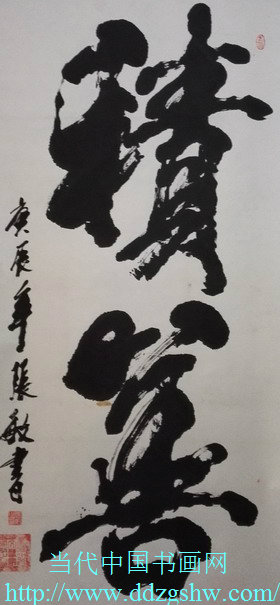 積善
庚辰年張敏書
当代中国书画网
http://www.ddzgshw.com